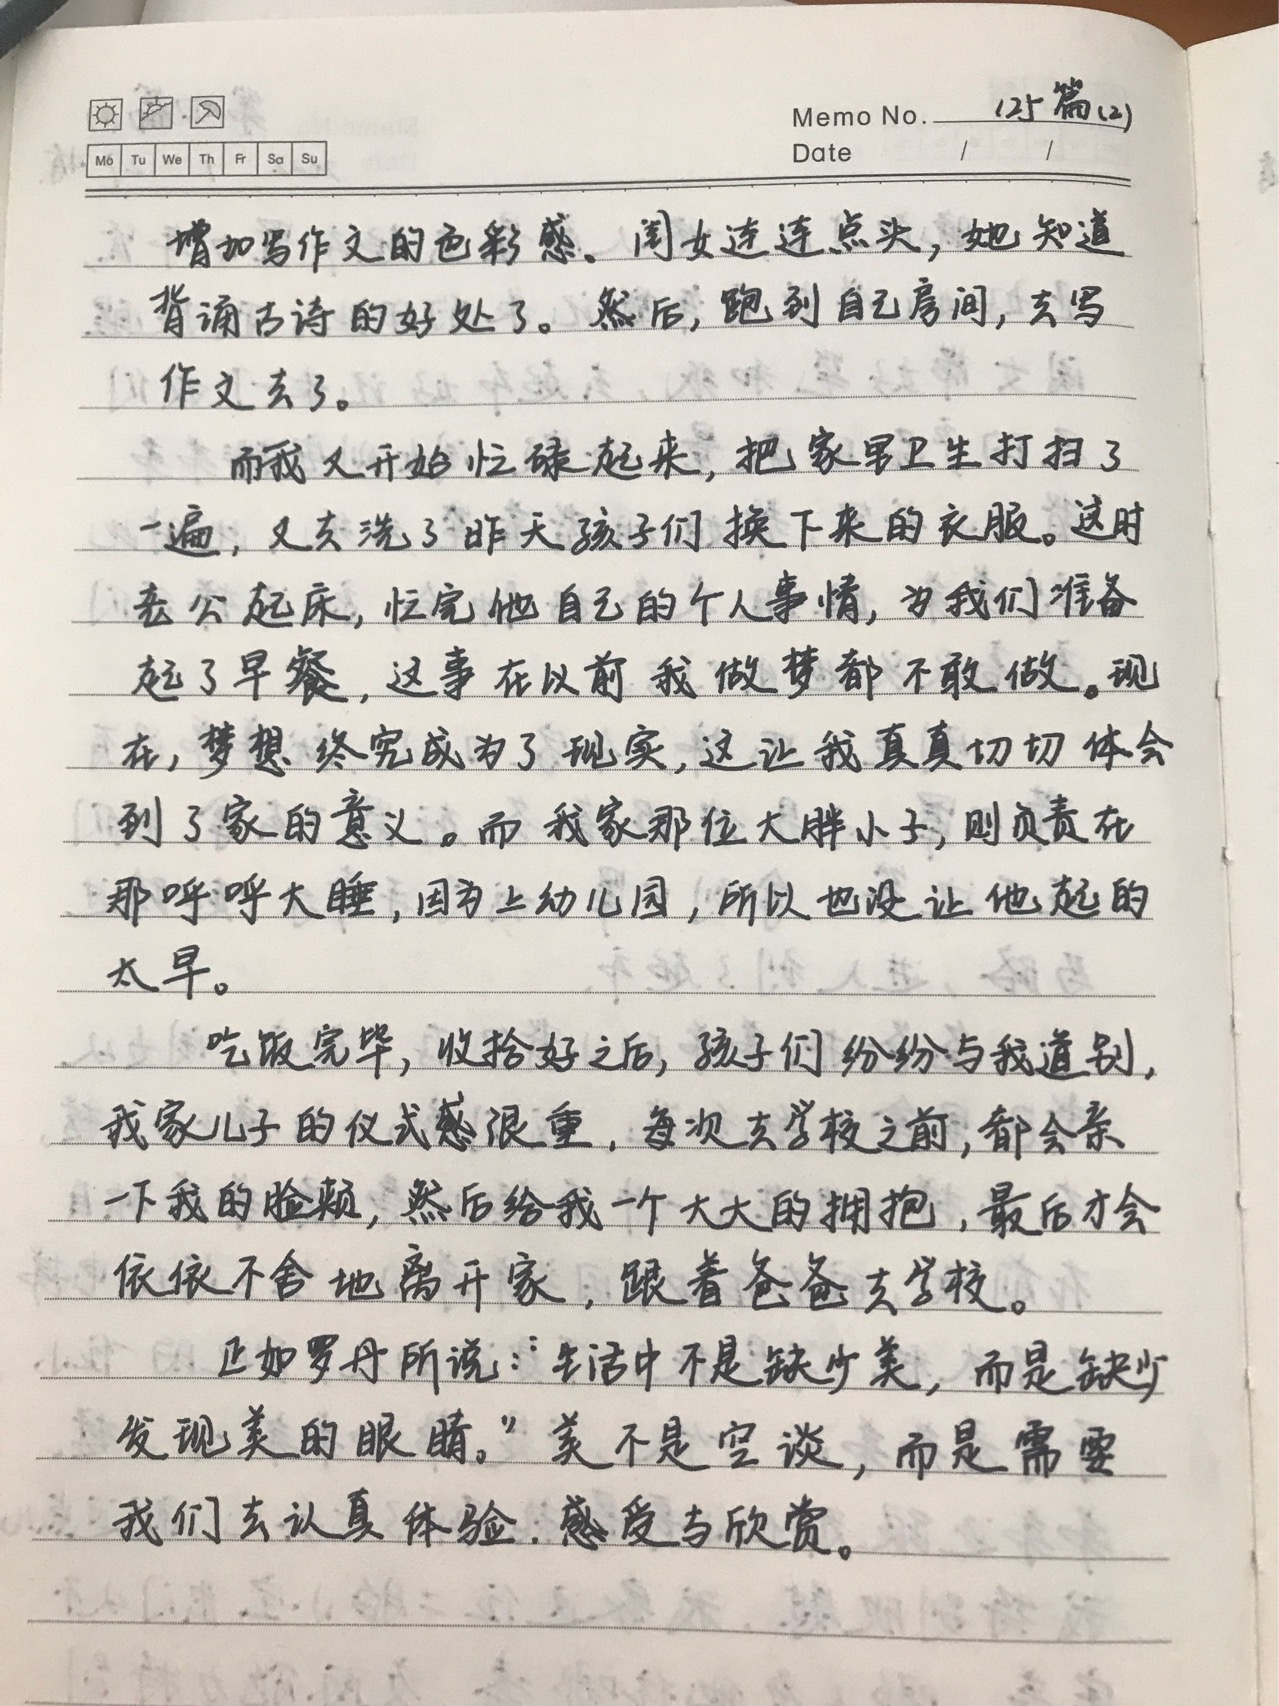 Memo No. 125篇(2)
Mo Tu We Th Fr Sa Su
Date / /
增加写作文的色彩感。闺女连连点头,她知道
背诵古诗的好处了。然后,跑到自己房间,去写
作文去了。
而我又开始忙碌起来,把家里卫生打扫了
一遍,又去洗了昨天孩子们换下来的衣服。这时
老公起床,忙完他自己的个人事情,为我们准备
起了早餐,这事在以前我做梦都不敢做。现
在,梦想终究成为了现实,这让我真真切切体会
到了家的意义。而我家那位大胖小子,则负责在
那呼呼大睡,因为上幼儿园,所以也没让他起的
太早。
吃饭完毕,收拾好之后,孩子们纷纷与我道别,
我家儿子的仪式感很重,每次去学校之前,都会亲
一下我的脸颊,然后给我一个大大的拥抱,最后才会
依依不舍地离开家,跟着爸爸去学校。
正如罗丹所说:“生活中不是缺少美,而是缺少
发现美的眼睛。”美不是空谈,而是需要
我们去认真体验、感受与欣赏。